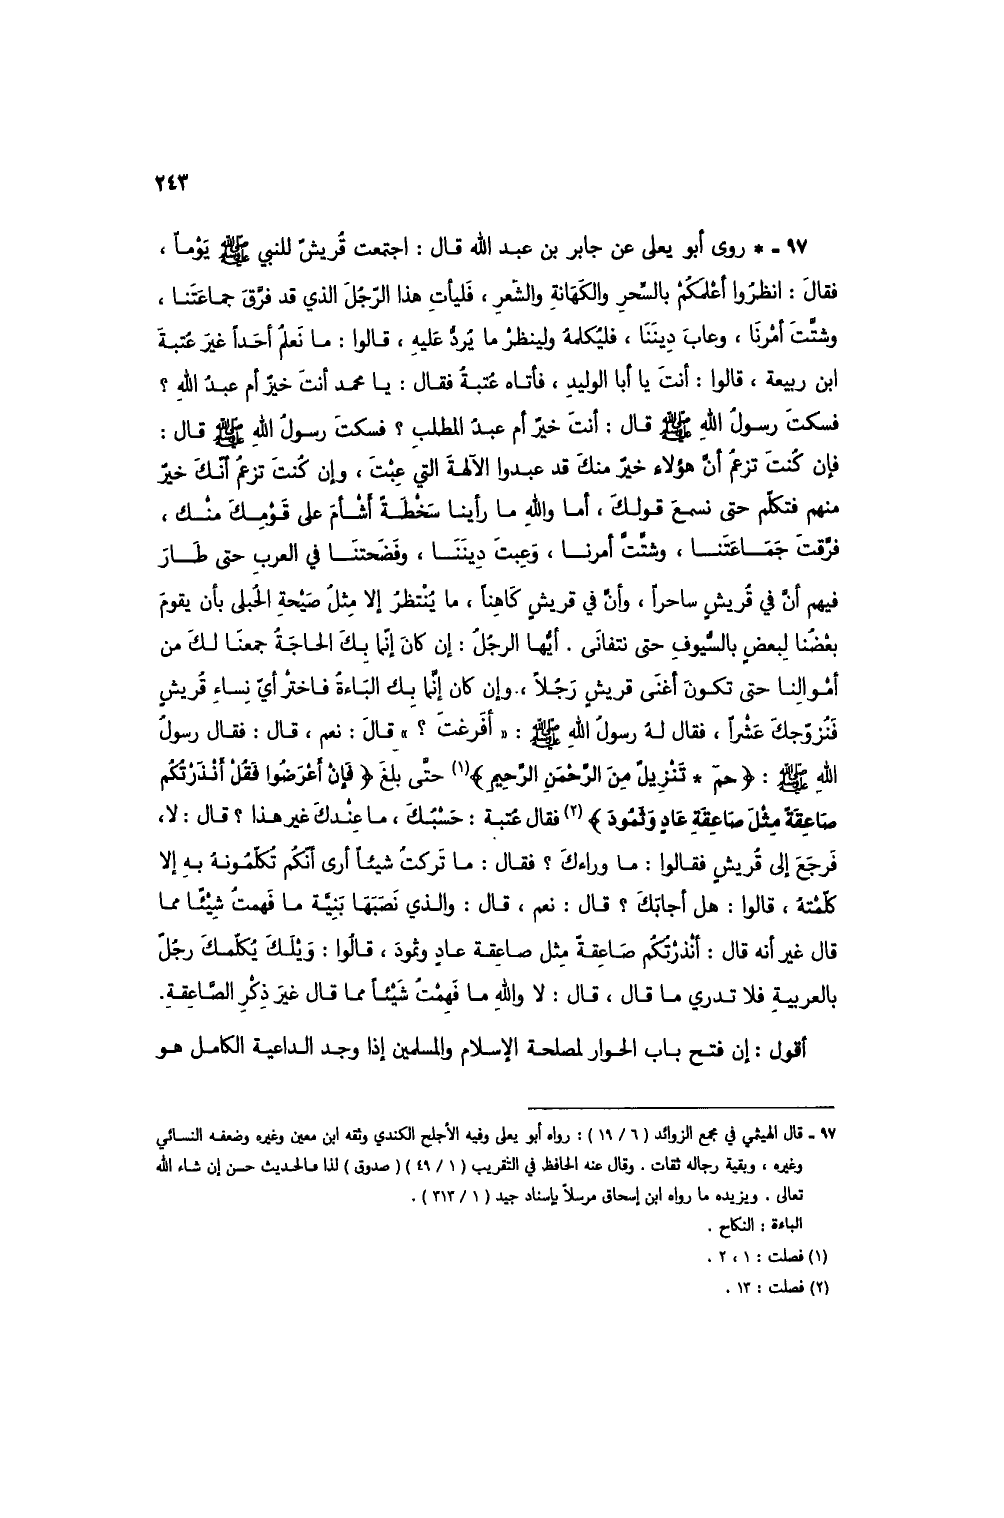 ٢٤٣
٩٧ - * روى أبو يعلى عن جابر بن عبد الله قال : اجتمعت قُريشٌ للنبي ﷺ يَوْماً ،
فقالَ : انظرُوا أعْلمَكُمْ بالسِّحرِ والكَهَانةِ والشّعرِ ، فَليأتِ هذا الرّجُلَ الذي قد فرَّقَ جماعَتَنا ،
وشتَّتَ أمْرنَا ، وعابَ دِينَنَا ، فليُكلمهُ ولينظرْ ما يُردُّ عَليهِ ، قالوا : ما نَعلمُ أحَداً غيرَ عُتبةَ
ابن ربيعة ، قالوا : أنتَ يا أبا الوليدِ ، فأتاه عُتبةُ فقال : يا محمد أنتَ خيرٌ أم عبدُ اللهِ ؟
فسكتَ رسولُ اللهِ ﷺ قال : أنتَ خيرٌ أم عبدُ المطلبِ ؟ فسكتَ رسولُ اللهِ ﷺ قال :
فإن كُنتَ تزعمُ أنَّ هؤلاء خيرٌ منكَ قد عبدوا الآلهةَ التي عِبْتَ ، وإن كُنتَ تزعمُ أنّكَ خيرٌ
منهم فتكلّم حتى نسمعَ قولكَ ، أما واللهِ ما رأينا سَخْطَةً أَشْأمَ على قَوْمِكَ منْك ،
فرَّقتَ جَمَاعَتَنا ، وشتَّتَّ أمرنا ، وَعِبتَ دِينَنَا ، وفَضَحتنَا في العربِ حتى طَارَ
فيهم أنَّ في قُريشٍ ساحراً ، وأنَّ في قريشٍ كَاهِناً ، ما يُنْتظرُ إلا مِثلُ صَيْحةِ الحُبلى بأن يقومَ
بعْضُنا لِبعضٍ بالسُّيوفِ حتى نتفانَى . أيُّها الرجُلُ : إن كانَ إنَّما بِكَ الحاجَةُ جمعنَا لكَ من
أمْوالِنا حتى تكونَ أغنَى قريشٍ رَجُلاً ، وإن كان إنَّما بِك البَاءةُ فاخترْ أيّ نِساءِ قُريشٍ
فَنُزوّجكَ عَشْراً ، فقال لهُ رسولُ اللهِ ﷺ : « أفَرغتَ ؟ » قالَ : نعم ، قال : فقال رسولُ
اللهِ ﷺ : ﴿ حمۤ * تَنْزِيلٌ مِنَ الرَّحْمَنِ الرَّحِيمِ ﴾(١) حتَّى بلغَ ﴿ فَإِنْ أَعْرَضُوا فَقُلْ أَنْذَرْتُكُم
صَاعِقَةً مِثْلَ صَاعِقَةِ عَادٍ وَثَمُودَ ﴾ (٢) فقال عُتبة : حَسْبُكَ ، ما عِنْدكَ غير هذا ؟ قال : لا ،
فَرجَعَ إلى قُريشٍ فقالوا : ما وراءكَ ؟ فقال : ما تَركتُ شيئاً أرى أنّكُم تُكلّمُونهُ بهِ إلا
كلّمْتهُ ، قالوا : هل أجابَكَ ؟ قال : نعم ، قال : والذي نَصَبَهَا بَنِيَّة ما فَهمتُ شيْئًا مما
قال غير أنه قال : أنْذرْتُكُم صَاعِقةً مِثل صاعِقة عادٍ وثمودَ ، قالُوا : وَيْلَكَ يُكلّمكَ رجُلٌ
بالعربيةِ فلا تدري ما قال ، قال : لا واللهِ ما فَهِمْتُ شَيْئاً مما قال غيرَ ذِكْرِ الصَّاعِقةِ.
أقول : إن فتح باب الحوار لمصلحة الإسلام والمسلمين إذا وجد الداعية الكامل هو
٩٧ - قال الهيثمي في مجمع الزوائد ( ٦ / ١٩ ) : رواه أبو يعلى وفيه الأجلح الكندي وثقه ابن معين وغيره وضعفه النسائي
وغيره ، وبقية رجاله ثقات . وقال عنه الحافظ في التقريب ( ١ / ٤٩ ) ( صدوق ) لذا فالحديث حسن إن شاء الله
تعالى . ويزيده ما رواه ابن إسحاق مرسلاً بإسناد جيد ( ١ / ٣١٣ ) .
الباءة : النكاح .
(١) فصلت : ١ ، ٢ .
(٢) فصلت : ١٣ .